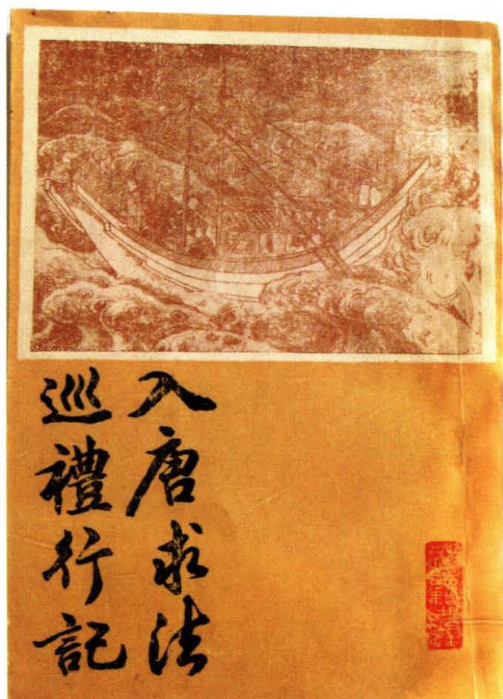 入唐求法
巡禮行記